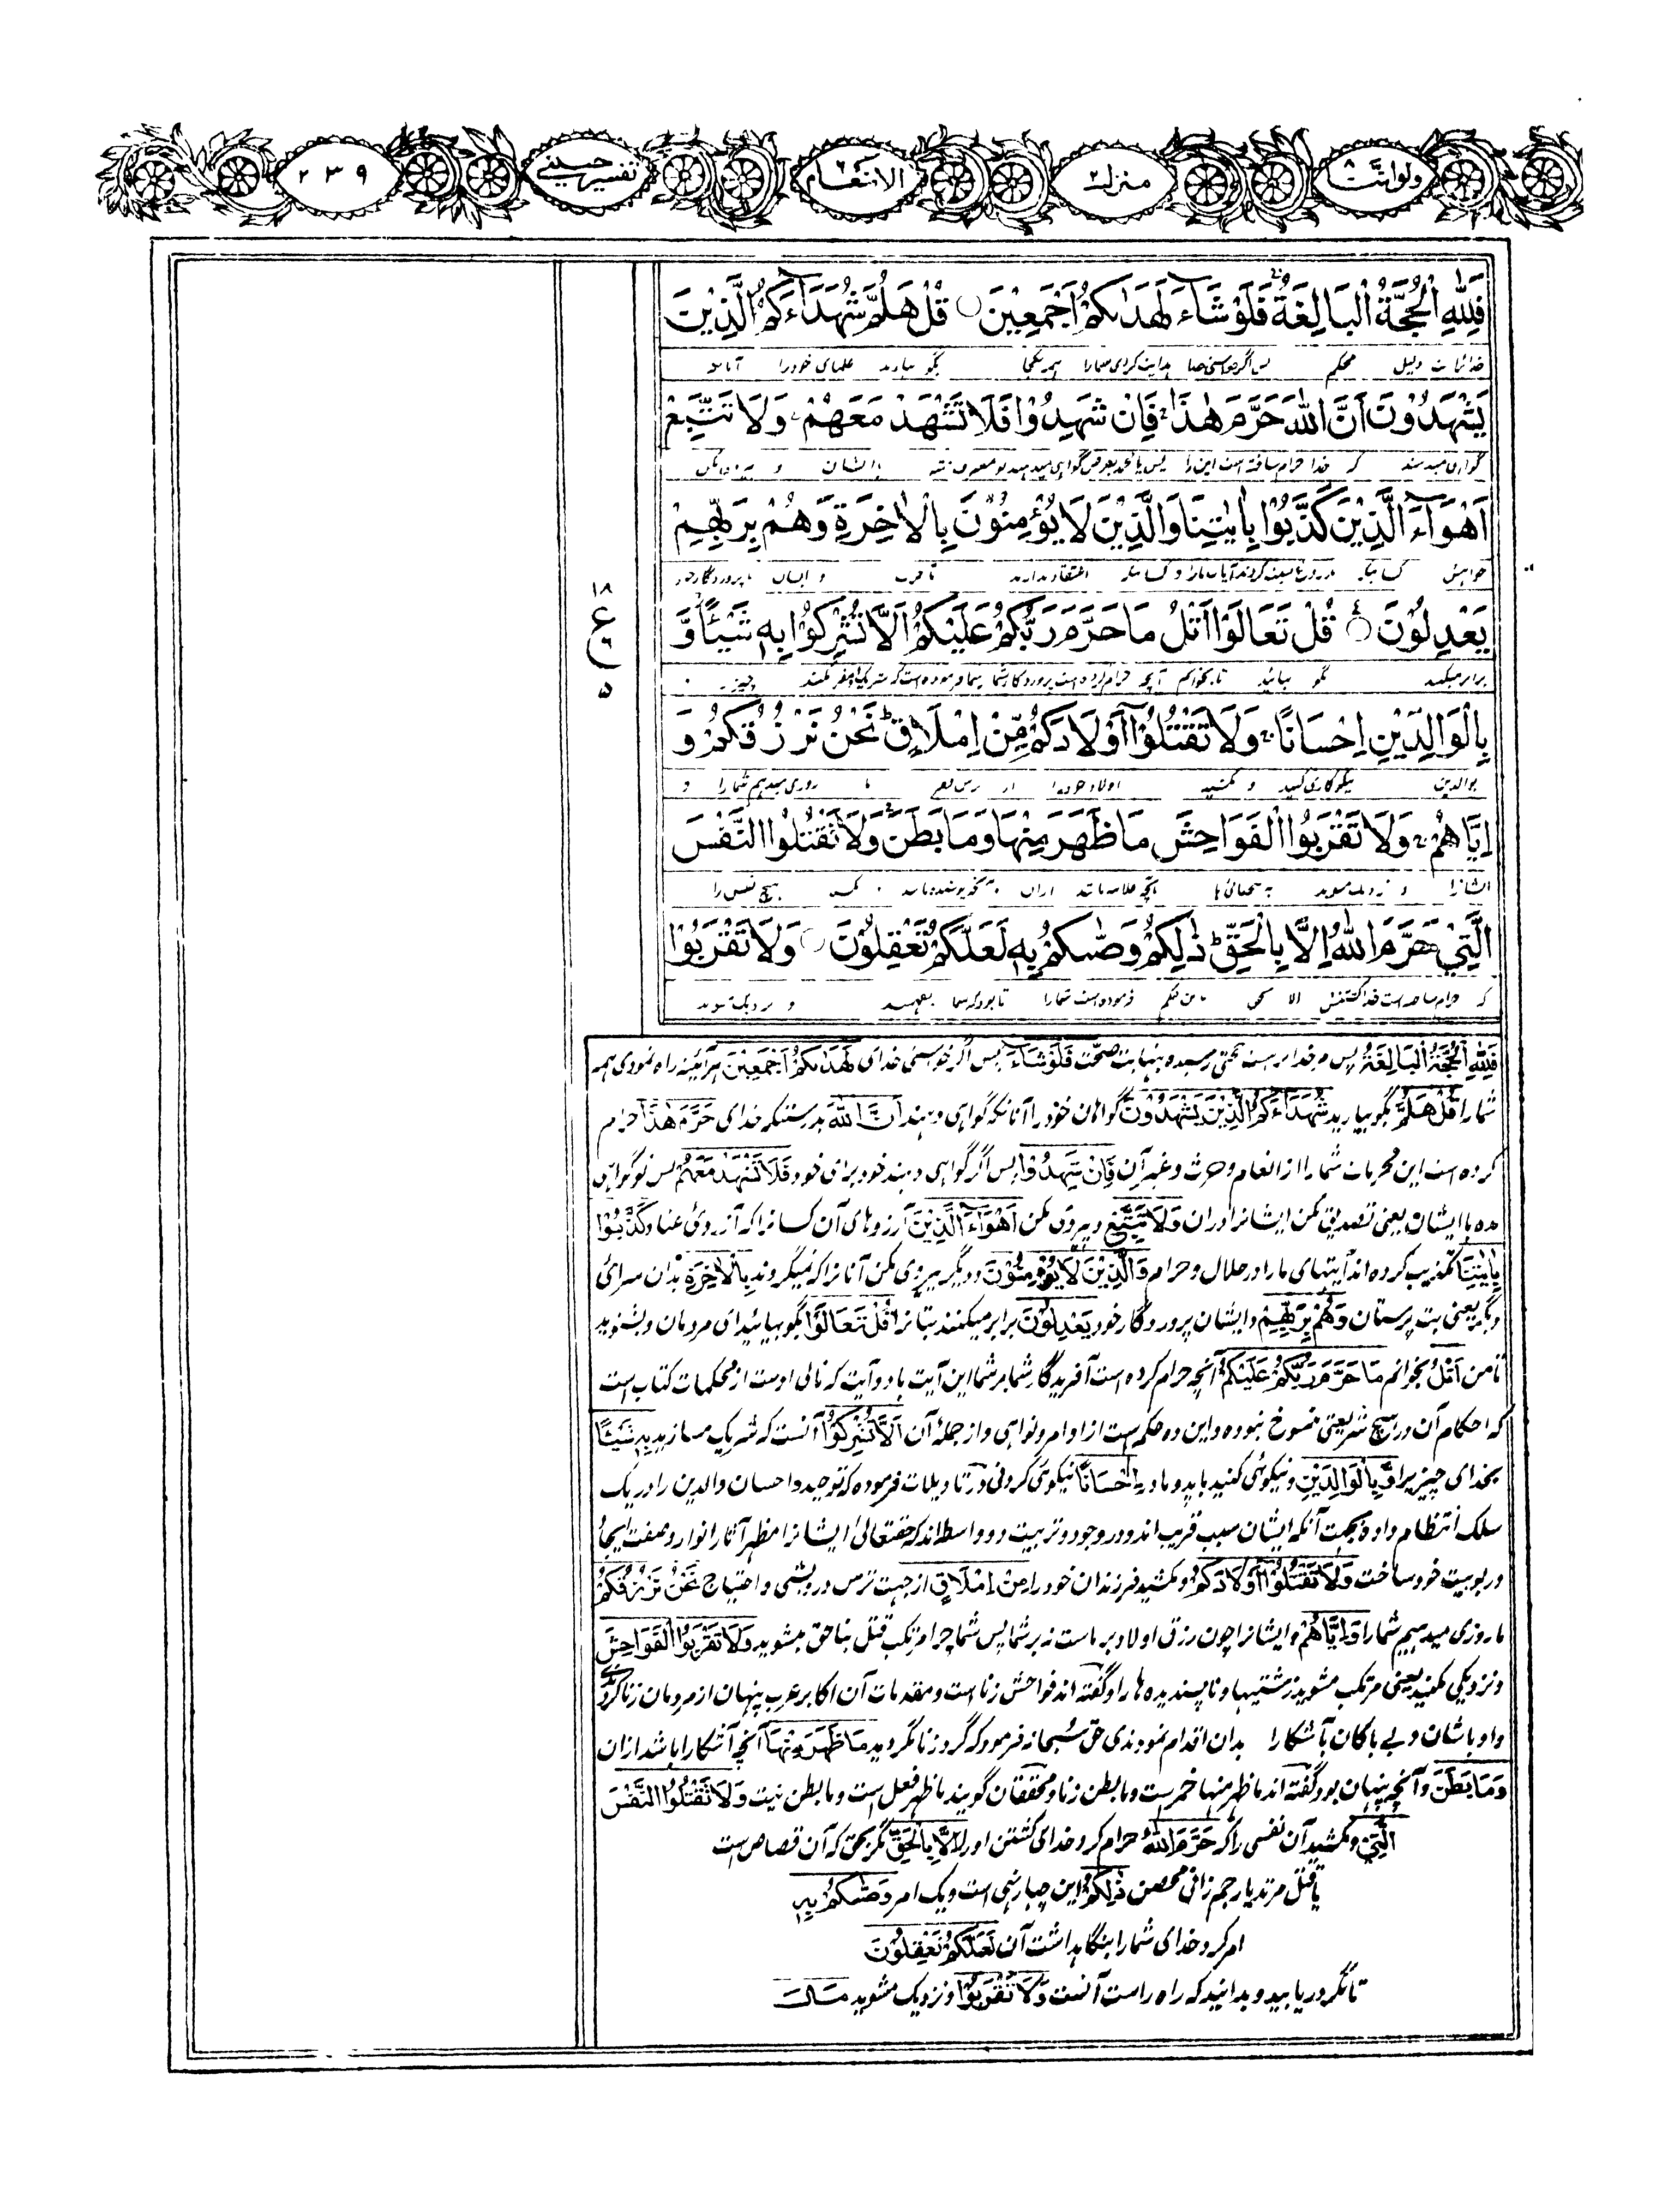 ولواننا ۸
منزل ۲
الانعام ۶
تفسیر حسینی
۲۳۹
فَلِلّٰهِ الْحُجَّةُ الْبَالِغَةُ ۚ فَلَوْ شَآءَ لَهَدٰىكُمْ اَجْمَعِيْنَ ○ قُلْ هَلُمَّ شُهَدَآءَكُمُ الَّذِيْنَ
خدائراست دلیل محکم پس اگر خواستی خدا هدایت کردی شمارا همه یکجا بگو بیارید علمای خود را آنانکه
يَشْهَدُوْنَ اَنَّ اللّٰهَ حَرَّمَ هٰذَا ۚ فَاِنْ شَهِدُوْا فَلَا تَشْهَدْ مَعَهُمْ ۚ وَلَا تَتَّبِعْ
گواهی میدهند که خدا حرام ساخته است این را پس با ایشان و پیروی مکن
اَهْوَآءَ الَّذِيْنَ كَذَّبُوْا بِاٰيٰتِنَا وَالَّذِيْنَ لَا يُؤْمِنُوْنَ بِالْاٰخِرَةِ وَهُمْ بِرَبِّهِمْ
خواهش کسانیکه آیات مارا و کسانیکه اعتقاد ندارند بآخرت و ایشان بپروردگار خود
يَعْدِلُوْنَ ○ قُلْ تَعَالَوْا اَتْلُ مَا حَرَّمَ رَبُّكُمْ عَلَيْكُمْ اَلَّا تُشْرِكُوْا بِهٖ شَيْـًٔا وَّ
۱۸
ع
۵
برابر میکنند بگو بیائید تا بخوانم آنچه حرام کرده است پروردگار شما چیزی
بِالْوَالِدَيْنِ اِحْسَانًا ۚ وَلَا تَقْتُلُوْٓا اَوْلَادَكُمْ مِّنْ اِمْلَاقٍ ؕ نَحْنُ نَرْزُقُكُمْ وَ
بوالدین نیکوکاری کنید و مکشید اولاد خود را از ترس فقر ما روزی میدهیم شمارا و
اِيَّاهُمْ ۚ وَلَا تَقْرَبُوا الْفَوَاحِشَ مَا ظَهَرَ مِنْهَا وَمَا بَطَنَ ۚ وَلَا تَقْتُلُوا النَّفْسَ
ایشانرا و نزدیک مشوید به بیحیائی‌ها آنچه علانیه باشد ازان و آنچه پوشیده باشد و مکشید هیچ نفس را
الَّتِيْ حَرَّمَ اللّٰهُ اِلَّا بِالْحَقِّ ؕ ذٰلِكُمْ وَصّٰىكُمْ بِهٖ لَعَلَّكُمْ تَعْقِلُوْنَ ○ وَلَا تَقْرَبُوْا
که حرام ساخته است خدا کشتنش الا بحق این حکم فرموده است شمارا تا بود که شما بفهمید و نزدیک مشوید
فَلِلّٰهِ الْحُجَّةُ الْبَالِغَةُ پس مر خدایراست حجتی رسیده بنهایت صحت فَلَوْ شَآءَ پس اگر خواستی خدای لَهَدٰىكُمْ اَجْمَعِيْنَ هر آئینه راه نمودی همه
شمارا قُلْ هَلُمَّ بگو بیارید شُهَدَآءَكُمُ الَّذِيْنَ يَشْهَدُوْنَ گواهان خود را آنانکه گواهی دهند اَنَّ اللّٰهَ بدرستیکه خدای حَرَّمَ هٰذَا حرام
کرده است این محرمات شمارا از انعام و حرث و غیر آن فَاِنْ شَهِدُوْا پس اگر گواهی دهند خود برای خود فَلَا تَشْهَدْ مَعَهُمْ پس تو گواهی
مده با ایشان یعنی تصدیق مکن ایشانرا دران وَلَا تَتَّبِعْ و پیروی مکن اَهْوَآءَ الَّذِيْنَ آرزوهای آن کسانرا که از روی عناد كَذَّبُوْا
بِاٰيٰتِنَا تکذیب کرده اند آیتهای مارا در حلال و حرام وَالَّذِيْنَ لَا يُؤْمِنُوْنَ و دیگر پیروی مکن آنانرا که نمیگروند بِالْاٰخِرَةِ بدان سرای
دیگر یعنی بت پرستان وَهُمْ بِرَبِّهِمْ و ایشان بپروردگار خود يَعْدِلُوْنَ برابر میکنند بتانرا قُلْ تَعَالَوْا بگو بیائید ای مردمان و بشنوید
تا من اَتْلُ بخوانم مَا حَرَّمَ رَبُّكُمْ عَلَيْكُمْ آنچه حرام کرده است آفریدگار شما بر شما این آیت با دو آیت که تالی اوست از محکمات کتاب است
که احکام آن در هیچ شریعتی منسوخ نبوده و این ده حکم است از اوامر و نواهی و از جملۀ آن اَلَّا تُشْرِكُوْا آنست که شریک مسازید بِهٖ شَيْـًٔا
بخدای چیزیرا وَّبِالْوَالِدَيْنِ و نیکوئی کنید با پدر و مادر اِحْسَانًا نیکوئی کردنی در تاویلات فرموده که توحید و احسان والدین را در یک
سلک انتظام داده بجهت آنکه ایشان سبب قریب اند در وجود و تربیت و دو واسطه اند که حقتعالی ایشانرا مظهر آثار انوار و صفت ایجاد
و ربوبیت خود ساخت وَلَا تَقْتُلُوْٓا اَوْلَادَكُمْ و مکشید فرزندان خود را مِنْ اِمْلَاقٍ از جهت ترس درویشی و احتیاج نَحْنُ نَرْزُقُكُمْ
ما روزی میدهیم شمارا وَاِيَّاهُمْ و ایشانرا چون رزق اولاد بر ماست نه بر شما پس شما چرا مرتکب قتل بناحق میشوید وَلَا تَقْرَبُوا الْفَوَاحِشَ
و نزدیکی مکنید یعنی مرتکب مشوید زشتیها و ناپسندیده ها را و گفته اند فواحش زناست و مقدمات آن اکابر عرب پنهان از مردمان زنا کردندی
و اوباشان و بی باکان آشکارا بدان اقدام نمودندی حق سبحانه فرمود که گرد زنا مگردید مَا ظَهَرَ مِنْهَا آنچه آشکارا باشد ازان
وَمَا بَطَنَ و آنچه پنهان بود گفته اند ما ظهر منها خمرست و ما بطن زنا و محققان گویند ما ظهر فعل است و ما بطن نیت وَلَا تَقْتُلُوا النَّفْسَ
الَّتِيْ و مکشید آن نفسی را که حَرَّمَ اللّٰهُ حرام کرد خدای کشتن او را اِلَّا بِالْحَقِّ مگر بحق که آن قصاص است
یا قتل مرتد یا رجم زانی محصن ذٰلِكُمْ این چهار نهی است و یک امر وَصّٰىكُمْ بِهٖ
امر کرد خدای شمارا بنگاهداشت آن لَعَلَّكُمْ تَعْقِلُوْنَ
تا مگر دریابید و بدانید که راه راست آنست وَلَا تَقْرَبُوْا و نزدیک مشوید مَالَ